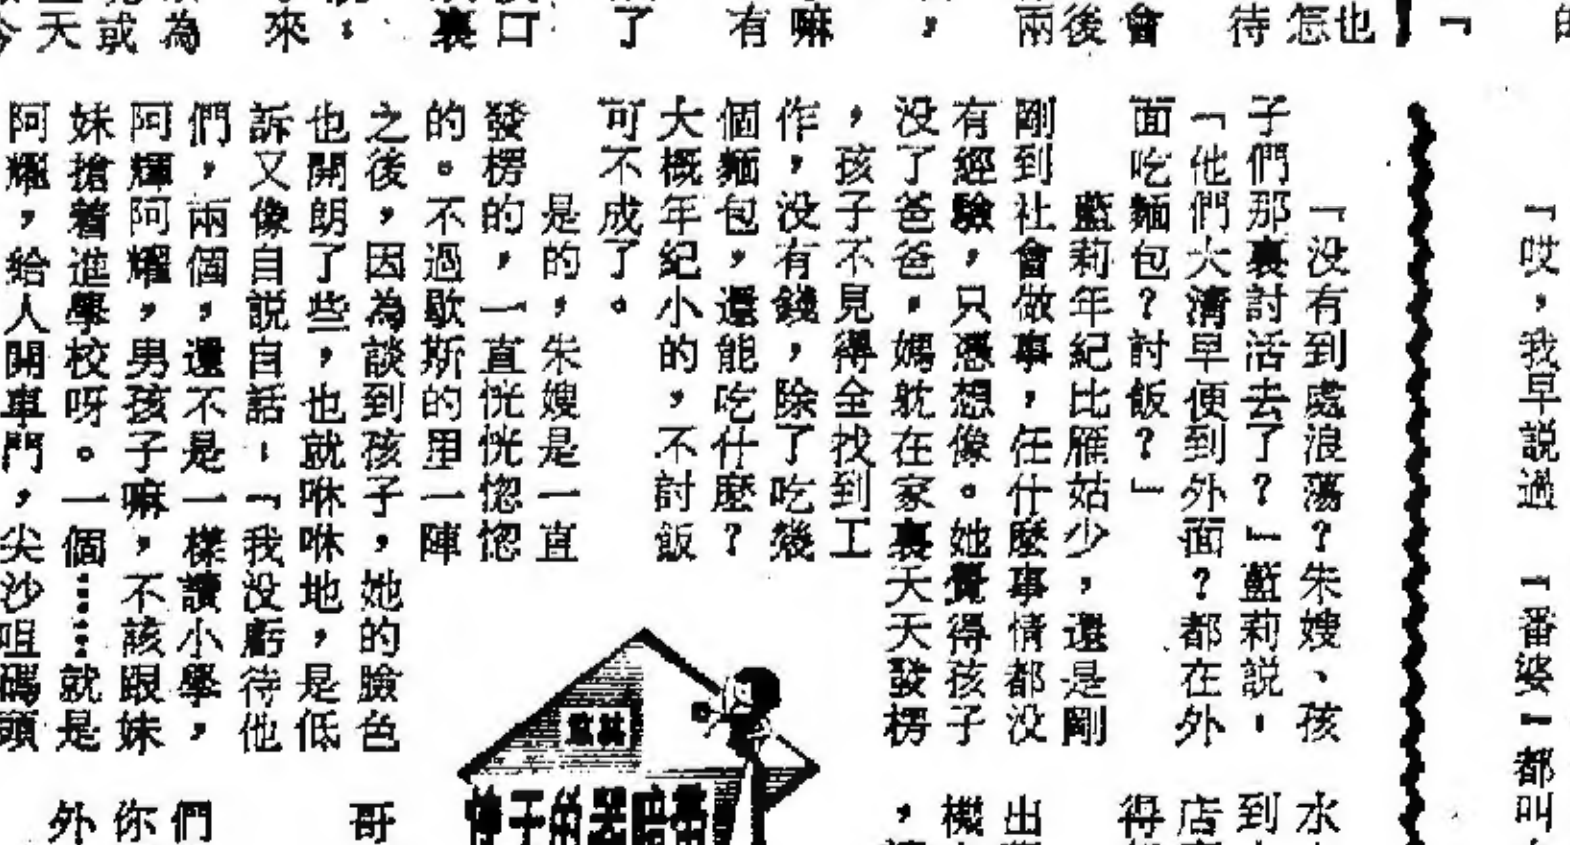 「哎，我早説過
「番婆」都叫
的
「
也
怎
待
會
後
兩
，
嘛
有
了
口
裏
來
為
或
天
今
「没有到處浪蕩？朱嫂、孩
子們那裏討活去了？」藍莉説，
「他們大清早便到外面？都在外
面吃麵包？討飯？」
藍莉年紀比雁姑少，還是剛
剛到社會做事，任什麼事情都没
有經驗，只憑想像。她覺得孩子
没了爸爸，媽躭在家裏天天發楞
，孩子不見得全找到工
作，没有錢，除了吃幾
個麵包，還能吃什麽？
大概年紀小的，不討飯
可不成了。
是的，朱嫂是一直
發楞的，一直恍恍惚惚
的。不過歇斯的里一陣
之後，因為談到孩子，她的臉色
也開朗了些，也就咻咻地，是低
訴又像自説自話：「我没虧待他
們，兩個，還不是一樣讀小學，
阿輝阿耀，男孩子嘛，不該跟妹
妹搶着進學校呀。一個……就是
阿耀，給人開車門，尖沙咀碼頭
水
到
店
得
出
機
，
哥
們
你
外